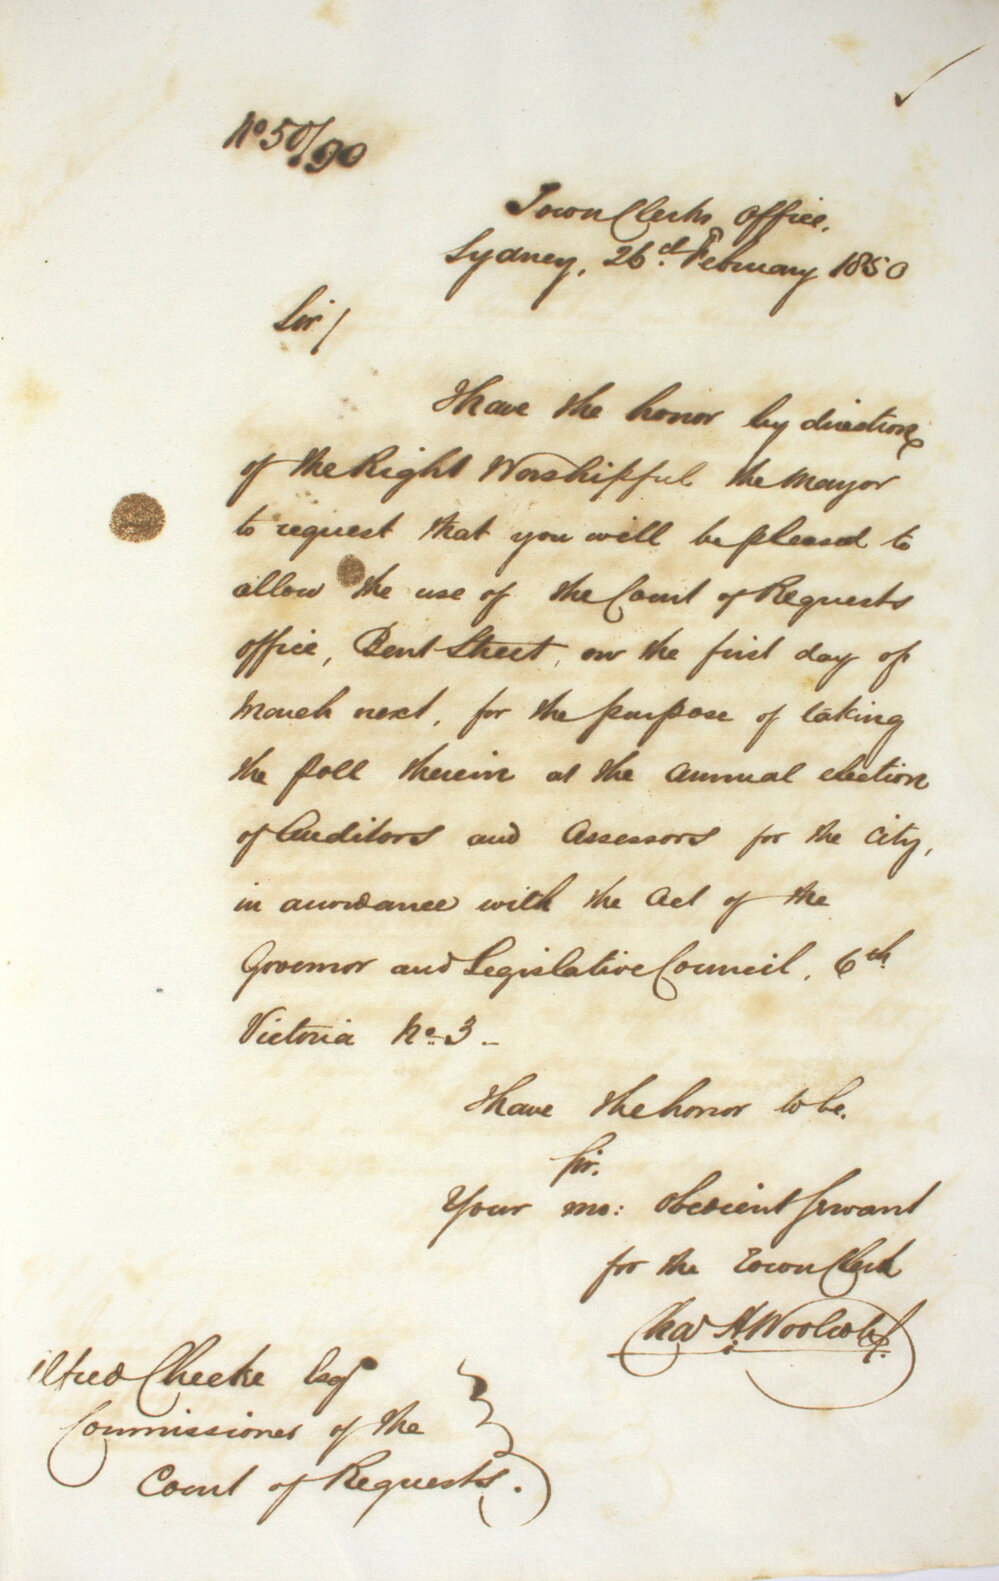 No 50/90
Town Clerks Office,
Sydney, 26.d February 1850
Sir/
I have the honor by direction
of the Right Worshipful the Mayor
to request that you will be pleased to
allow the use of the Court of Requests
office, Bent Street, on the first day of
March next, for the purpose of taking
the poll therein at the annual election
of Auditors and Assessors for the City,
in accordance with the Act of the
Governor and Legislative Council, 6th
Victoria No. 3 -
I have the honor to be.
Sir.
Your mo: obedient Servant
for the Town Clerk
Chas H. Woolcott
Alfred Cheeke Esqr
Commissioner of the
Court of Requests.